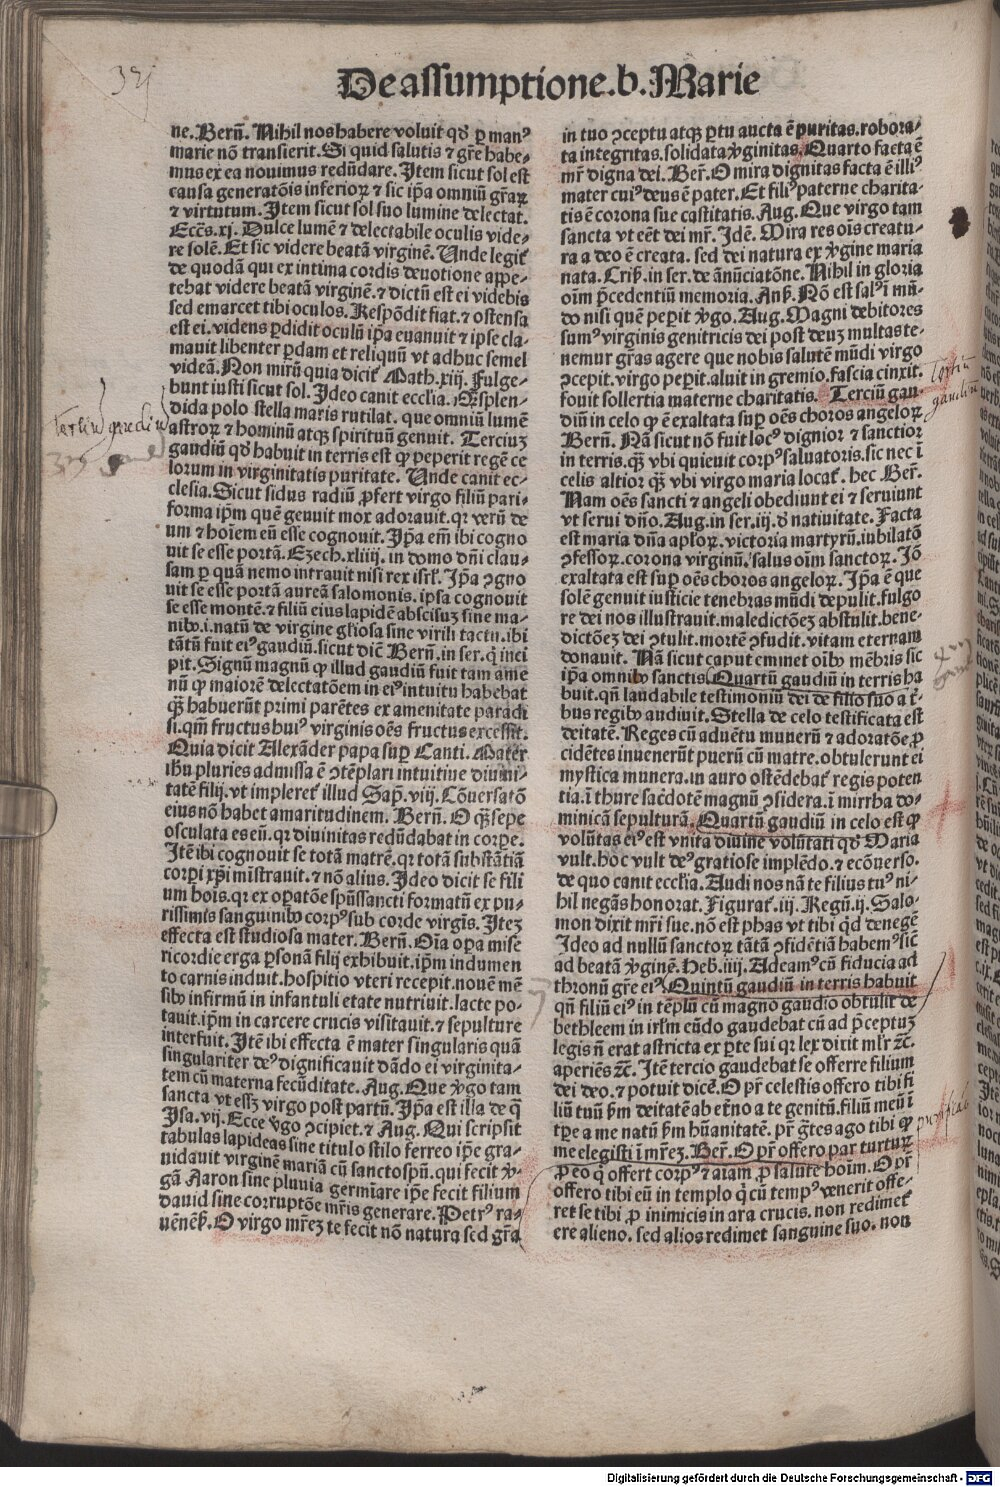 De assumptione.b.Marie
ne. Berñ. Nihil nos habere voluit qď ꝑ manꝰ
marie nō transierit. Si quid salutis ⁊ gr̄e habe-
mus ex ea nouimus redūdare. Item sicut sol est
causa generatōis inferioꝝ ⁊ sic ip̄a omniū gr̄aꝝ
⁊ virtutum. Item sicut sol suo lumine delectat.
Eccēs. xj. Dulce lumē ⁊ delectabile oculis vide-
re solē. Et sic videre beatā virginē. Unde legit̄
de quodā qui ex intima cordis deuotione appe-
tebat videre beatā virginē. ⁊ dictū est ei videbis
sed emarcet tibi oculos. Respōdit fiat. ⁊ ostensa
est ei. videns ꝑdidit oculū ip̄a euanuit ⁊ ipse cla-
mauit libenter ꝑdam et reliquū vt adhuc semel
videā. Non mirū quia dicit̄ Math. xiij. Fulge-
bunt iusti sicut sol. Ideo canit ecclīa. O splen-
dida polo stella maris rutilat. que omniū lumē
astroꝝ ⁊ hominū atqꝫ spirituū genuit. Terciuꝫ
gaudiū qď habuit in terris est ꝙ peperit regē ce
lorum in virginitatis puritate. Unde canit ec-
clesia. Sicut sidus radiū ꝓfert virgo filiū pari-
forma ip̄m quē genuit mox adorauit. qr verū de
um ⁊ hoīem eū esse cognouit. Ip̄a em̄ ibi cogno
uit se esse portā. Ezech. xliiij. in domo dn̄i clau-
sam ꝑ quā nemo intrauit nisi rex isrl̄. Ip̄a ꝯgno
uit se esse portā aureā salomonis. ipsa cognouit
se esse montē. ⁊ filiū eius lapidē abscisuꝫ sine ma-
nibꝰ. i. natū de virgine gl̄iosa sine virili tactu. ibi
tātū fuit eiꝰ gaudiū. sicut dic̄ Berñ. in ser. q̇ inci
pit. Signū magnū ꝙ illud gaudiū fuit tam ame
nū ꝙ maiorē delectatōem in eiꝰ intuitu habebat
qꝫ̄ habuerūt primi parētes ex amenitate paradi
si. qm̄ fructus huiꝰ virginis oēs fructus excessit.
Quia dicit Alexāder papa suꝑ Canti. Mater
ih̄u pluries admissa ē ꝯtēplari intuitiue diuini-
tatē filij. vt impleret̄ illud Sap̄. viij. Cōuersatō
eius nō habet amaritudinem. Berñ. O qꝫ̄ sepe
osculata es eū. qr diuinitas redūdabat in corꝑe.
Itē ibi cognouit se totā matrē. qr totā substātiā
corꝑi xp̄i mīstrauit. ⁊ nō alius. Ideo dicit se fili
um hoīs. qr ex oꝑatōe spūssancti formatū ex pu-
rissimis sanguinibꝰ corpꝰ sub corde virgīs. Iteꝫ
effecta est studiosa mater. Berñ. Oīa oꝑa mise
ricordie erga ꝑsonā filij exhibuit. ip̄m indumen
to carnis induit. hospitio vteri recepit. nouē mē
sibꝰ infirmū in infantuli etate nutriuit. lacte po-
tauit. ip̄m in carcere crucis visitauit. ⁊ sepulture
interfuit. Itē ibi effecta ē mater singularis quā
singulariter deꝰ dignificauit dādo ei virginita-
tem cū materna fecūditate. Aug. Que v̇go tam
sancta vt essꝫ virgo post partū. Ip̄a est illa de q̄
Isa. vij. Ecce v̇go ꝯcipiet. ⁊ Aug. Qui scripsit
tabulas lapideas sine titulo stilo ferreo ip̄e gra-
uidauit virginē mariā cū sanctospū. qui fecit v̇-
gā Aaron sine pluuia germīare ip̄e fecit filium
dauid sine corruptōe mr̄is generare. Petrꝰ ra-
uēneñ. O virgo mr̄eꝫ te fecit nō natura sed gr̄a
in tuo ꝯceptu atqꝫ ꝑtu aucta ē puritas. robora-
ta integritas. solidata v̇ginitas. Quarto facta ē
mr̄ digna dei. Ber̄. O mira dignitas facta ē illiꝰ
mater cuiꝰ deus ē pater. Et filiꝰ paterne charita-
tis ē corona sue castitatis. Aug. Que virgo tam
sancta vt eēt dei mr̄. Idē. Mira res oīs creatu-
ra a deo ē creata. sed dei natura ex v̇gine maria
nata. Criß. in ser. de ānūciatōne. Nihil in gloria
oīm p̄cedentiū memoria. Anß. Nō est salꝰ ī mū-
do nisi quē peꝑit v̇go. Aug. Magni debitores
sumꝰ virginis genitricis dei post deuꝫ multas te-
nemur gr̄as agere que nobis salutē mūdi virgo
ꝯcepit. virgo peꝑit. aluit in gremio. fascia cinxit.
fouit sollertia materne charitatis. Terciū gau-
diū in celo ꝙ ē exaltata suꝑ oēs choros angeloꝝ
Berñ. Nā sicut nō fuit locꝰ dignior ⁊ sanctior
in terris. qꝫ̄ vbi quieuit corpꝰ saluatoris. sic nec ī
celis altior qꝫ̄ vbi virgo maria locat̄. hec Ber̄.
Nam oēs sancti ⁊ angeli obediunt ei ⁊ seruiunt
vt serui dn̄o. Aug. in ser. iij. ď natiuitate. Facta
est maria dn̄a apl̄oꝝ. victoria martyrū. iubilatō
ꝯfessoꝝ. corona virginū. salus oīm sanctoꝝ. Iō
exaltata est suꝑ oēs choros angeloꝝ. Ip̄a ē que
solē genuit iusticie tenebras mūdi depulit. fulgo
re dei nos illustrauit. maledictōeꝫ abstulit. bene-
dictōeꝫ dei ꝯtulit. mortē ꝯfudit. vitam eternam
donauit. Nā sicut caput eminet oībꝰ mēbris sic
ip̄a omnibꝰ sanctis. Quartū gaudiū in terris ha
buit. qn̄ laudabile testimoniū dei de filio suo a t̄-
bus regibꝰ audiuit. Stella de celo testificata est
deitatē. Reges cū aduētu munerū ⁊ adoratōe ꝓ
cidētes inuenerūt puerū cū matre. obtulerunt ei
mystica munera. in auro ostēdebat̄ regis poten
tia. ī thure sac̄dotē magnū ꝯsidera. ī mirrha do-
minicā sepulturā. Quartū gaudiū in celo est ꝙ
volūtas eiꝰ est vnita diuine volūtati qď Maria
vult. hoc vult deꝰ gratiose implēdo. ⁊ ecōuerso.
de quo canit ecclīa. Audi nos nā te filius tuꝰ ni-
hil negās honorat. Figurat̄. iij. Regū. ij. Salo-
mon dixit mr̄i sue. nō est phas vt tibi q̇d denegē
Ideo ad nullū sanctoꝝ tātā ꝯfidētiā habemꝰ sic
ad beatā v̇ginē. Heb. iiij. Adeamꝰ cū fiducia ad
thronū gr̄e eiꝰ. Quintū gaudiū in terris habuit
qn̄ filiū eiꝰ in tēplū cū magno gaudio obtulit de
bethleem in irl̄m eūdo gaudebat cū ad p̄ceptuꝫ
legis n̄ erat astricta ex ꝑte sui qr lex dixit ml̄r ⁊c̄.
aperiēs ⁊c̄. Itē tercio gaudebat se offerre filium
dei deo. ⁊ potuit dicē. O pr̄ celestis offero tibi fi
liū tuū ẜm deitatē ab et̄no a te genitū. filiū meū ī
tꝑe a me natū ẜm hūanitatē. pr̄ gr̄tes ago tibi ꝙ
me elegisti ī mr̄eꝫ. Ber̄. O pr̄ offero par turtuꝝ
ꝓ eo q̇ offert corpꝰ ⁊ aīam ꝓ salute hoīm. O pr̄
offero tibi eū in templo q̇ cū tempꝰ venerit offe-
ret se tibi ꝓ inimicis in ara crucis. non redimet̄
ere alieno. sed alios redimet sanguine suo. non
tertiū gaudiū
tertiū
gaudiū
Digitalisierung gefördert durch die Deutsche Forschungsgemeinschaft - DFG